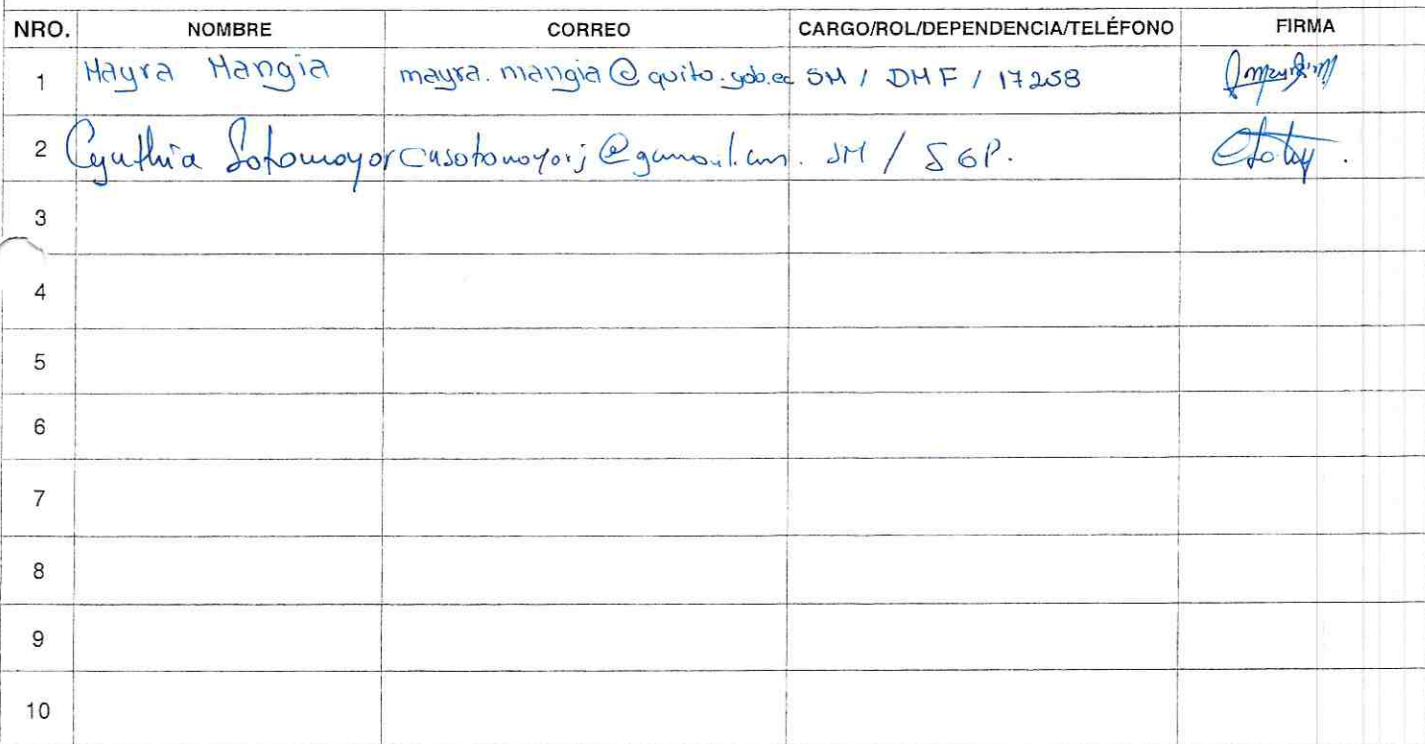 NRO. NOMBRE CORREO CARGO/ROL/DEPENDENCIA/TELÉFONO FIRMA
1 Mayra Mangia mayra.mangia@quito.gob.ec SM / DMF / 17258
2 Cynthia Sotomayor SM / SGP.
3
4
5
6
7
8
9
10